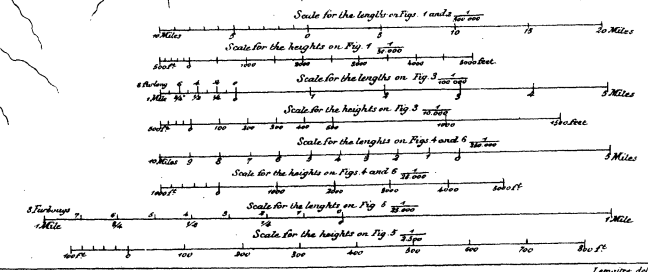 Scale for the lengths on Figs. 1 and 2 1/400 000
10 Miles 5 0 5 10 15 20 Miles
Scale for the heights on Fig. 1
500 ft 0 1000 2000 3000 4000 5000 feet
Scale for the lengths on Fig. 3 1/100 000
8 Furlong 6 4 2 0
1 Mile 3/4 1/2 1/4 0 1 2 3 4 5 Miles
Scale for the heights on Fig. 3 1/10.000
500 ft 0 100 200 300 400 500 1000 1500 feet
Scale for the lenghts on Figs. 4 and 6 1/250.000
10 Miles 9 8 7 6 5 4 3 2 1 0 5 Miles
Scale for the heights on Figs. 4 and 6 1/25.000
1000 ft 0 1000 2000 3000 4000 5000 ft
Scale for the lenghts on Fig 5 1/25.000
8 Furlongs 7 6 5 4 3 2 1 0
1 Mile 3/4 1/2 1/4 1 Mile
Scale for the heights on Fig. 5 1/2.500
100 ft 0 100 200 300 400 500 600 700 800 ft